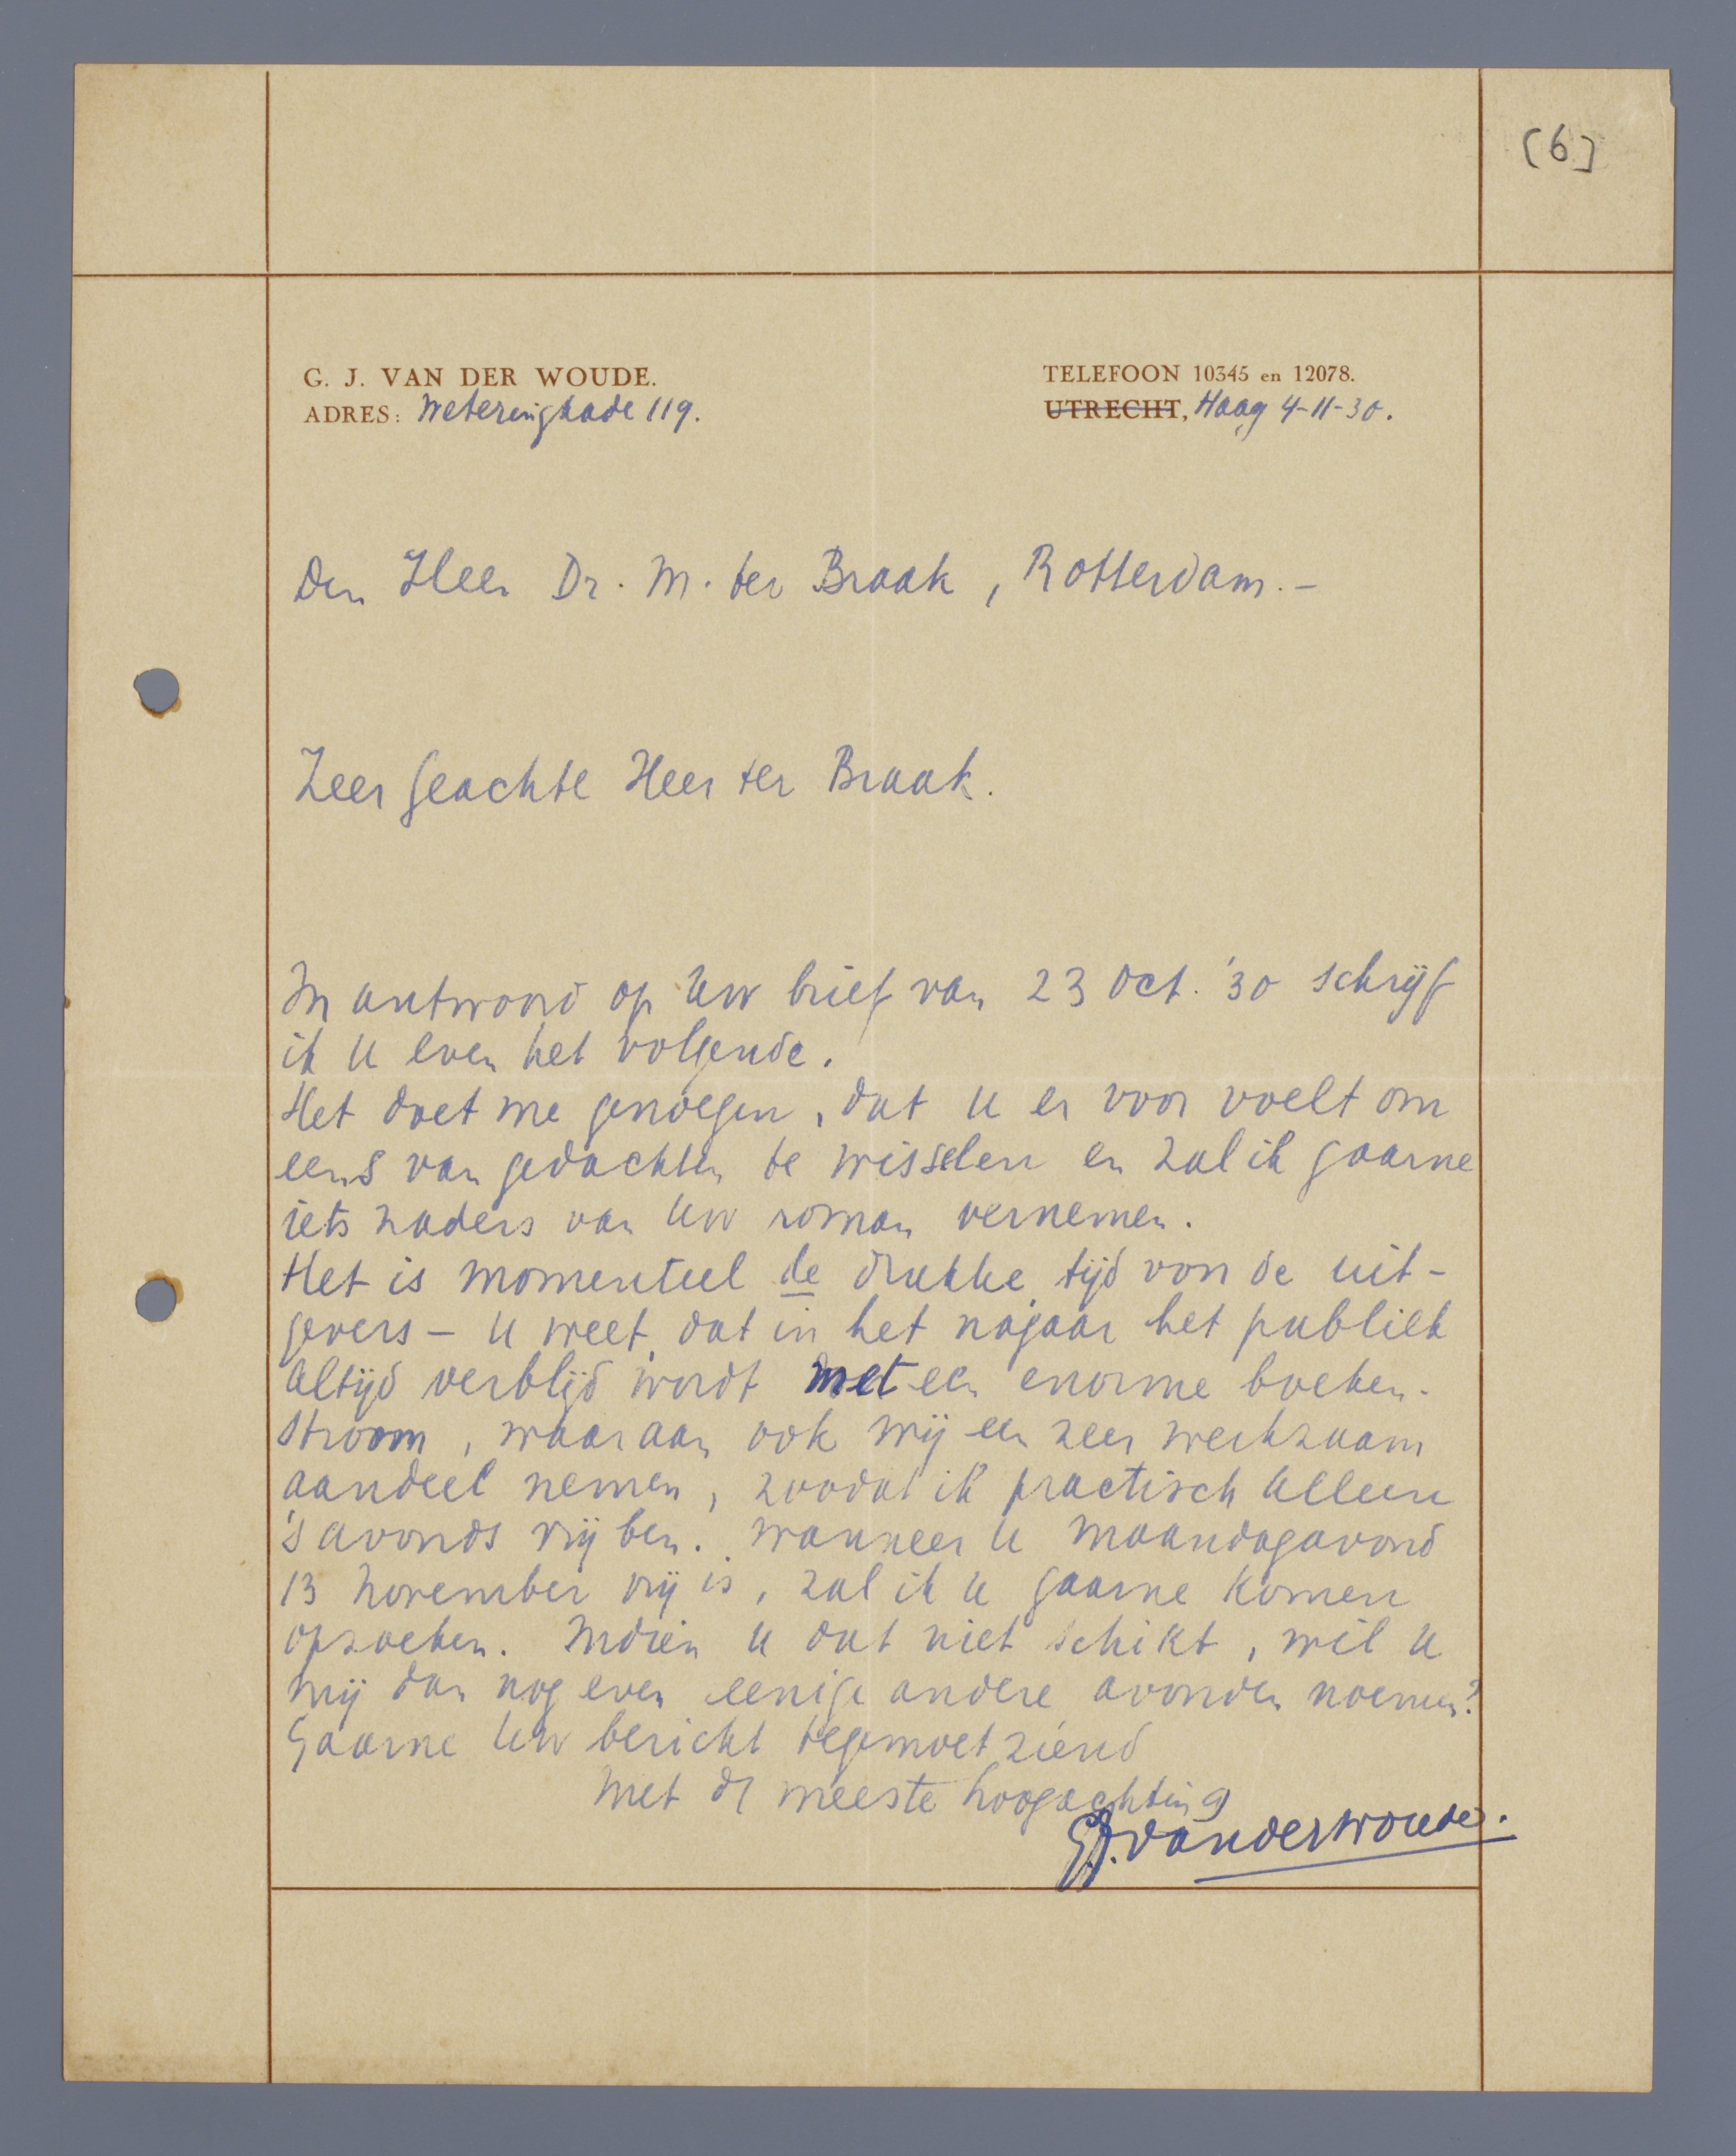 [6]
G. J. VAN DER WOUDE.
ADRES: Weteringkade 119.
TELEFOON 10345 en 12078.
UTRECHT, Haag 4-11-30.
Den Heer Dr. M. ter Braak, Rotterdam.-
Zeer geachte Heer ter Braak.
In antwoord op Uw brief van 23 Oct. '30 schrijf
ik U even het volgende.
Het doet me genoegen, dat U er voor voelt om
eens van gedachten te wisselen en zal ik gaarne
iets naders van Uw roman vernemen.
Het is momenteel de drukke tijd voor de uit-
gevers - U weet, dat in het najaar het publiek
altijd verblijd wordt met een enorme boeken-
stroom, waaraan ook wij een zeer werkzaam
aandeel nemen, zoodat ik practisch alleen
's avonds vrij ben. Wanneer U Maandagavond
13 November vrij is, zal ik U gaarne komen
opzoeken. Indien U dat niet schikt, wil U
mij dan nog even eenige andere avonden noemen?
Gaarne Uw bericht tegemoet ziend
met de meeste hoogachting
G.J. van der Woude.